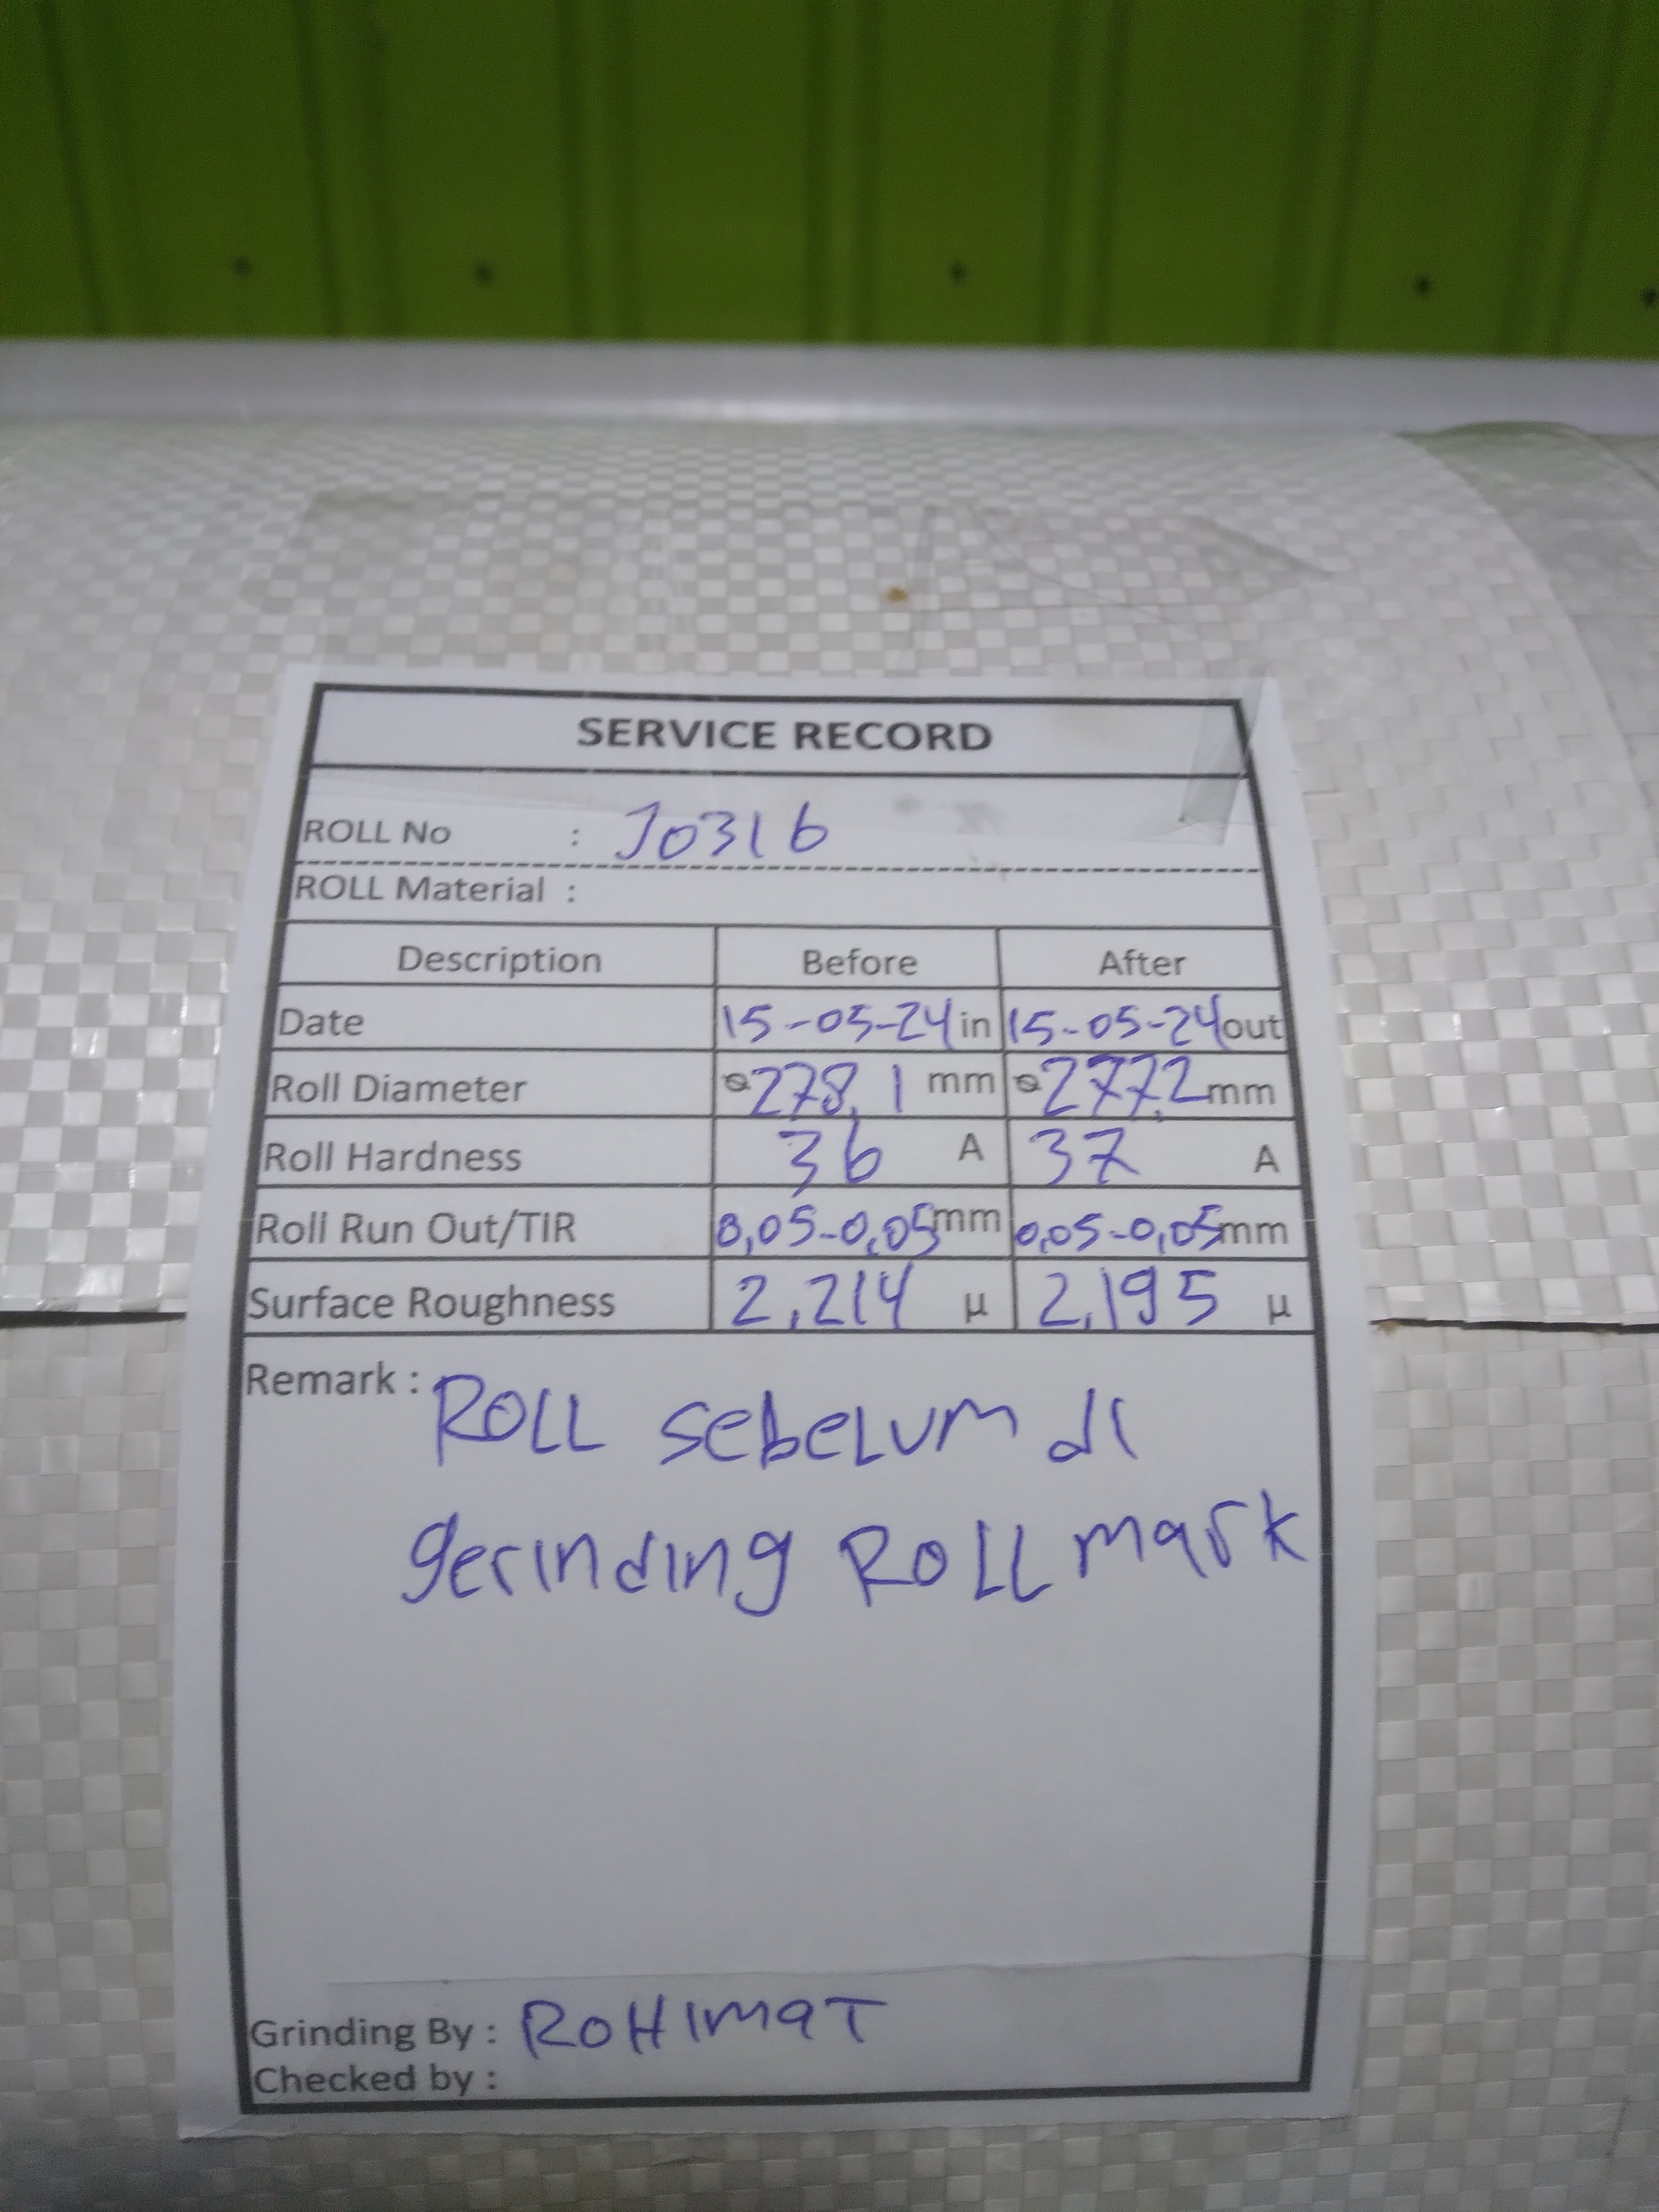 SERVICE RECORD
ROLL No : J0316
ROLL Material :
Description Before After
Date 15-05-24 in 15-05-24 out
Roll Diameter ⌀278,1 mm ⌀277,2 mm
Roll Hardness 36 A 37 A
Roll Run Out/TIR 0,05-0,05 mm 0,05-0,05 mm
Surface Roughness 2,214 μ 2,195 μ
Remark : ROLL sebelum di
gerinding ROLL mark
Grinding By : ROHIMAT
Checked by :